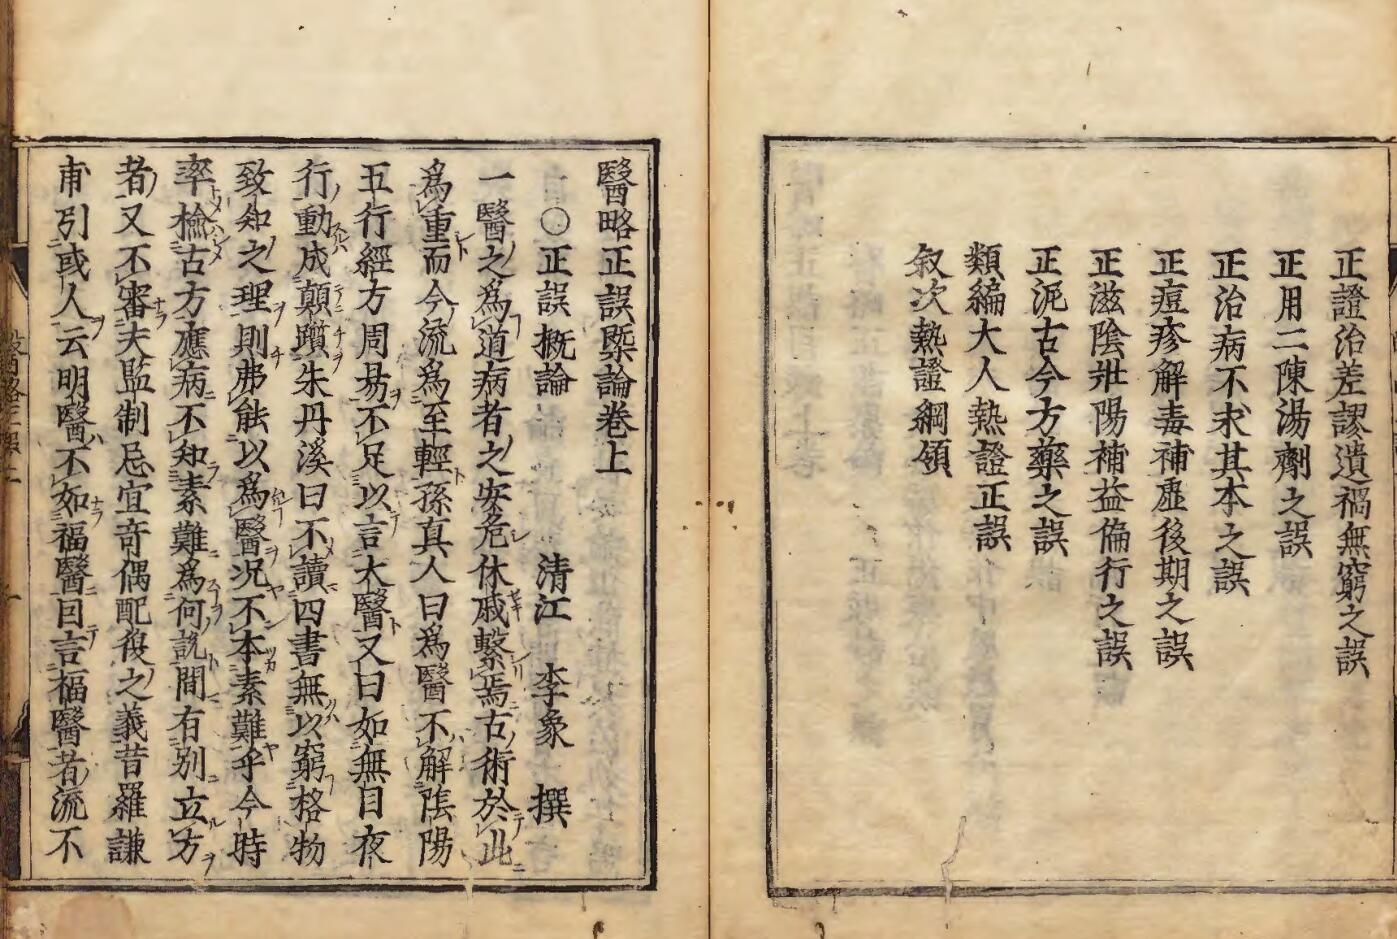 正證治差謬遺禍無窮之誤
正用二陳湯劑之誤
正治病不求其本之誤
正痘疹解毒補虛後期之誤
正滋陰壯陽補益偏行之誤
正泥古今方藥之誤
類編大人熱證正誤
叙次熱證綱領
醫略正誤槩論卷上
〇正誤概論 清江 李象 撰
一醫之爲道病者之安危休戚繫焉古術於此
爲重而今流爲至輕孫真人曰爲醫不解陰陽
五行經方周易不足以言太醫又曰如無目夜
行動成顛躓朱丹溪曰不讀四書無以窮格物
致知之理則弗能以爲醫况不本素難乎今時
率檢古方應病不知素難爲何説間有别立方
者又不審夫監制忌宜奇偶配復之義昔羅謙
甫引或人云明醫不如福醫曰言福醫者流不